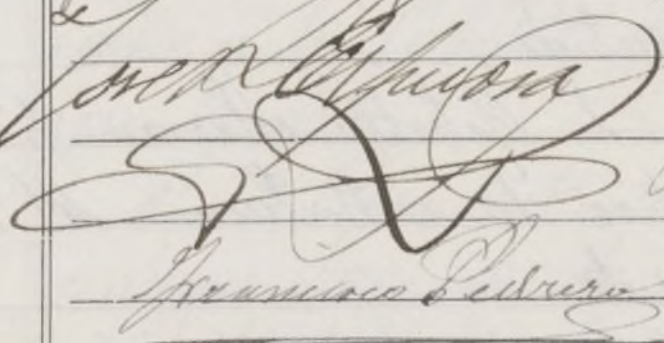 José Espinosa
Francisco Pedrero